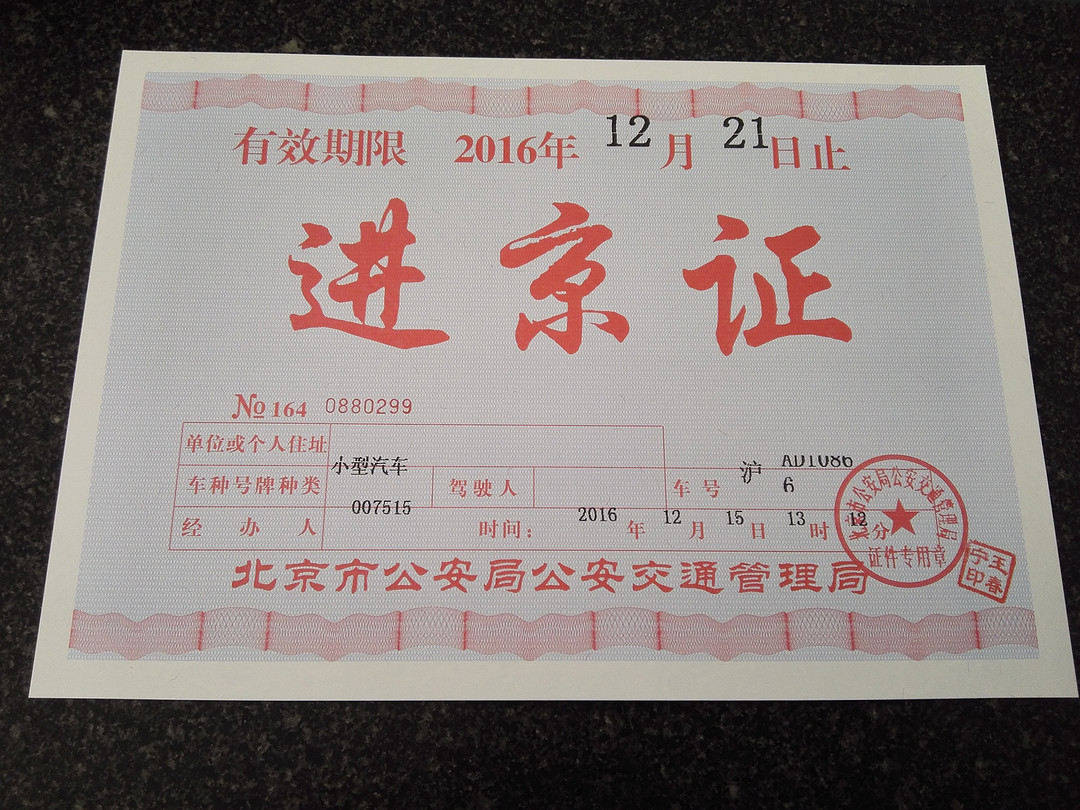 有效期限 2016年 12月 21日止
进京证
№ 164 0880299
单位或个人住址
车种号牌种类 小型汽车 驾驶人 车号 沪 AD1086
6
经办人 007515 时间: 2016年 12月 15日 13时 12分
北京市公安局公安交通管理局
北京市公安局公安交通管理局
证件专用章
王春宁印